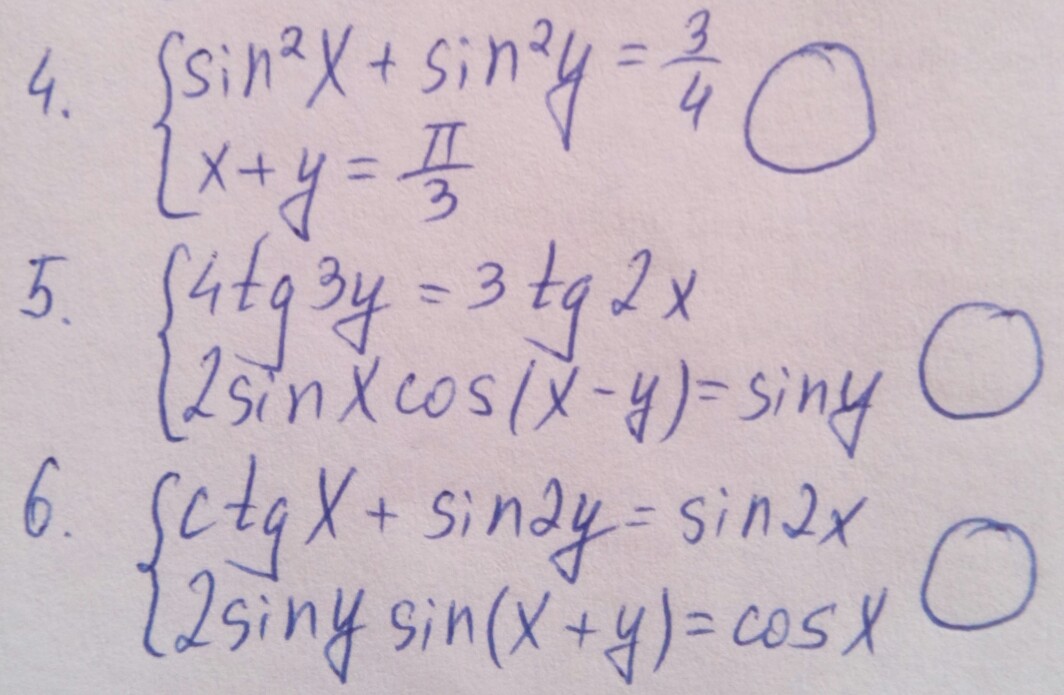 4. {sin²x + sin²y = 3/4
x + y = π/3
5. {4tg3y = 3tg2x
2sinx cos(x-y) = siny
6. {ctgx + sin2y = sin2x
2siny sin(x+y) = cosx